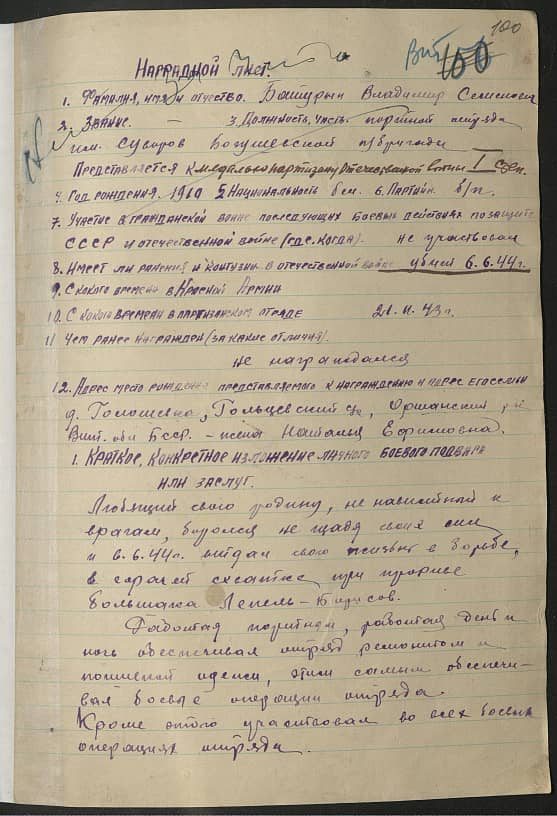 100
Вит 100
Наградной лист.
1. Фамилия, имя и отчество. Батурын Владимир Семенович
2. Звание. — 3. Должность, часть. портной отряда
им. Суворов Богушевской п/бригады
Представляется к медалью партизану Отечественной войны I степ.
4. Год рождения. 1919 5. Национальность бел. 6. Партийн. б/п.
7. Участие в гражданской войне последующих боевых действиях по защите
СССР и отечественной войне (где, когда). не участвовал
8. Имеет ли ранения и контузии в отечественной войне убит 6.6.44г.
9. С какого времени в Красной Армии
10. С какого времени в партизанском отряде 21.11.43г.
11 Чем ранее награжден (за какие отличия).
не награждался
12. Адрес место рождения представляемого к награждению и адрес его семьи
д. Голошевка, Оршанский
Вит. обл БССР. – жена Наталья Ефимовна.
1. Краткое, конкретное изложение личного боевого подвига
или заслуг.
Любящий свою родину, не навистный к
врагам, боролся не щадя своих сил
и 6.6.44г. отдал свою жизнь в борьбе,
в горачей схватке при прорыве
большака Лепель – Борисов.
Работая портным, работая день и
ночь обеспечивал отряд ремонтом и
пошивкой одежи, этим самым обеспечи-
вая боевые операции отряда.
Кроме этого участвовал во всех боевых
операциях отряда.